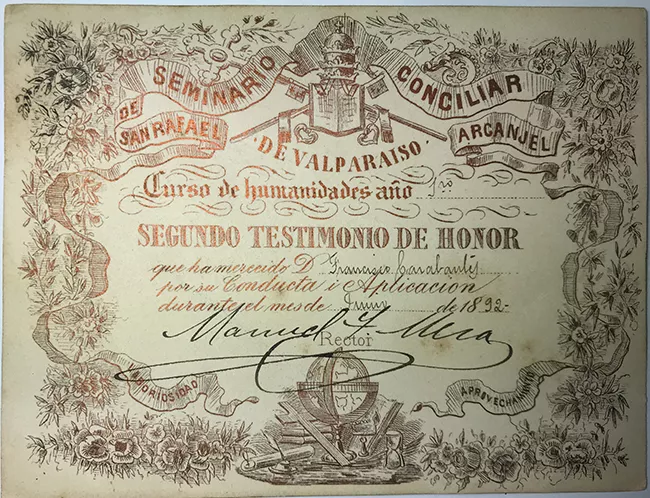 SEMINARIO CONCILIAR
DE SAN RAFAEL ARCANJEL
DE VALPARAISO
Curso de humanidades año 1ro
SEGUNDO TESTIMONIO DE HONOR
que ha merecido D Francisco Caralantis
por su Conducta i Aplicacion
durante el mes de Junio de 1892-
Manuel J. Mera
Rector
LABORIOSIDAD
APROVECHAMIENTO